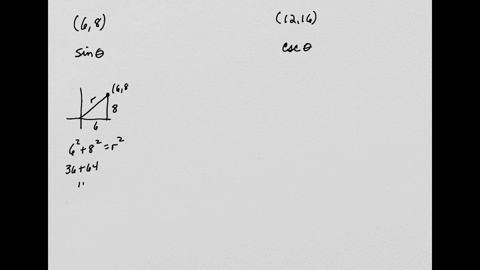 (6,8)
sinθ
r
(6,8
8
6
6²+8²=r²
36+64
(12,16)
cscθ